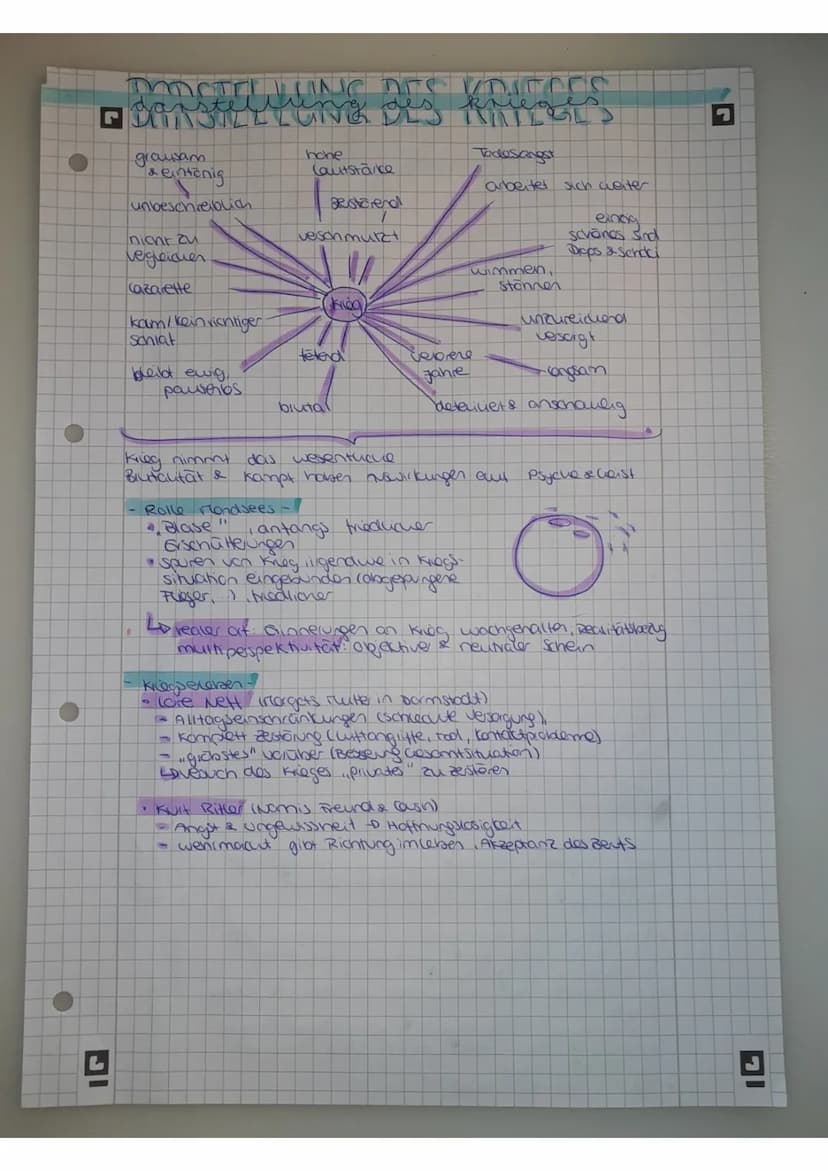 DARSTELLUNG DES KRIEGES
darstellung des krieges
grausam
& eintönig
unbeschreiblich
nicht zu
vergleichen
Lazarette
kaum/kein richtiger
schlaf
bleibt ewig,
pausenlos
hohe
Lautstärke
zerstörend
verschmutzt
Krieg
tötend
brutal
Todesangst
arbeitet sich weiter
einzig
schönes sind
Drops & Schoki
wimmern,
stöhnen
unzureichend
versorgt
verlorene
Jahre
langsam
detailliert & anschaulig
Krieg nimmt das wesentliche
Brutalität & Kampf haben Auswirkungen auf Psyche & Geist
- Rolle Mondsees -
• „Blase", anfangs friedlicher
Erschütterungen
• spuren von Krieg, irgendwie in Kriegs-
situation eingebunden (abgesprungene
Flieger, ) friedlicher
↳ realer Ort: Erinnerungen an Krieg wachgehalten, Realitätsbezug
multiperspektivität: objektive & neutraler Schein
- Kriegserleben -
• Lore Neff (Margots Mutter in Darmstadt)
- Alltagseinschränkungen (schlechte Versorgung),
- Komplett Zerstörung (Luftangriffe, Tod, Kontaktprobleme)
- „gröbstes" vorüber (Besserung Gesamtsituation)
↳ versuch des Krieges „privates" zu zerstören
• Kurt Ritler (Nannis Freund & Cousin)
- Angst & Ungewissheit → Hoffnungslosigkeit
- wehrmacht gibt Richtung im Leben, Akzeptanz des Berufs